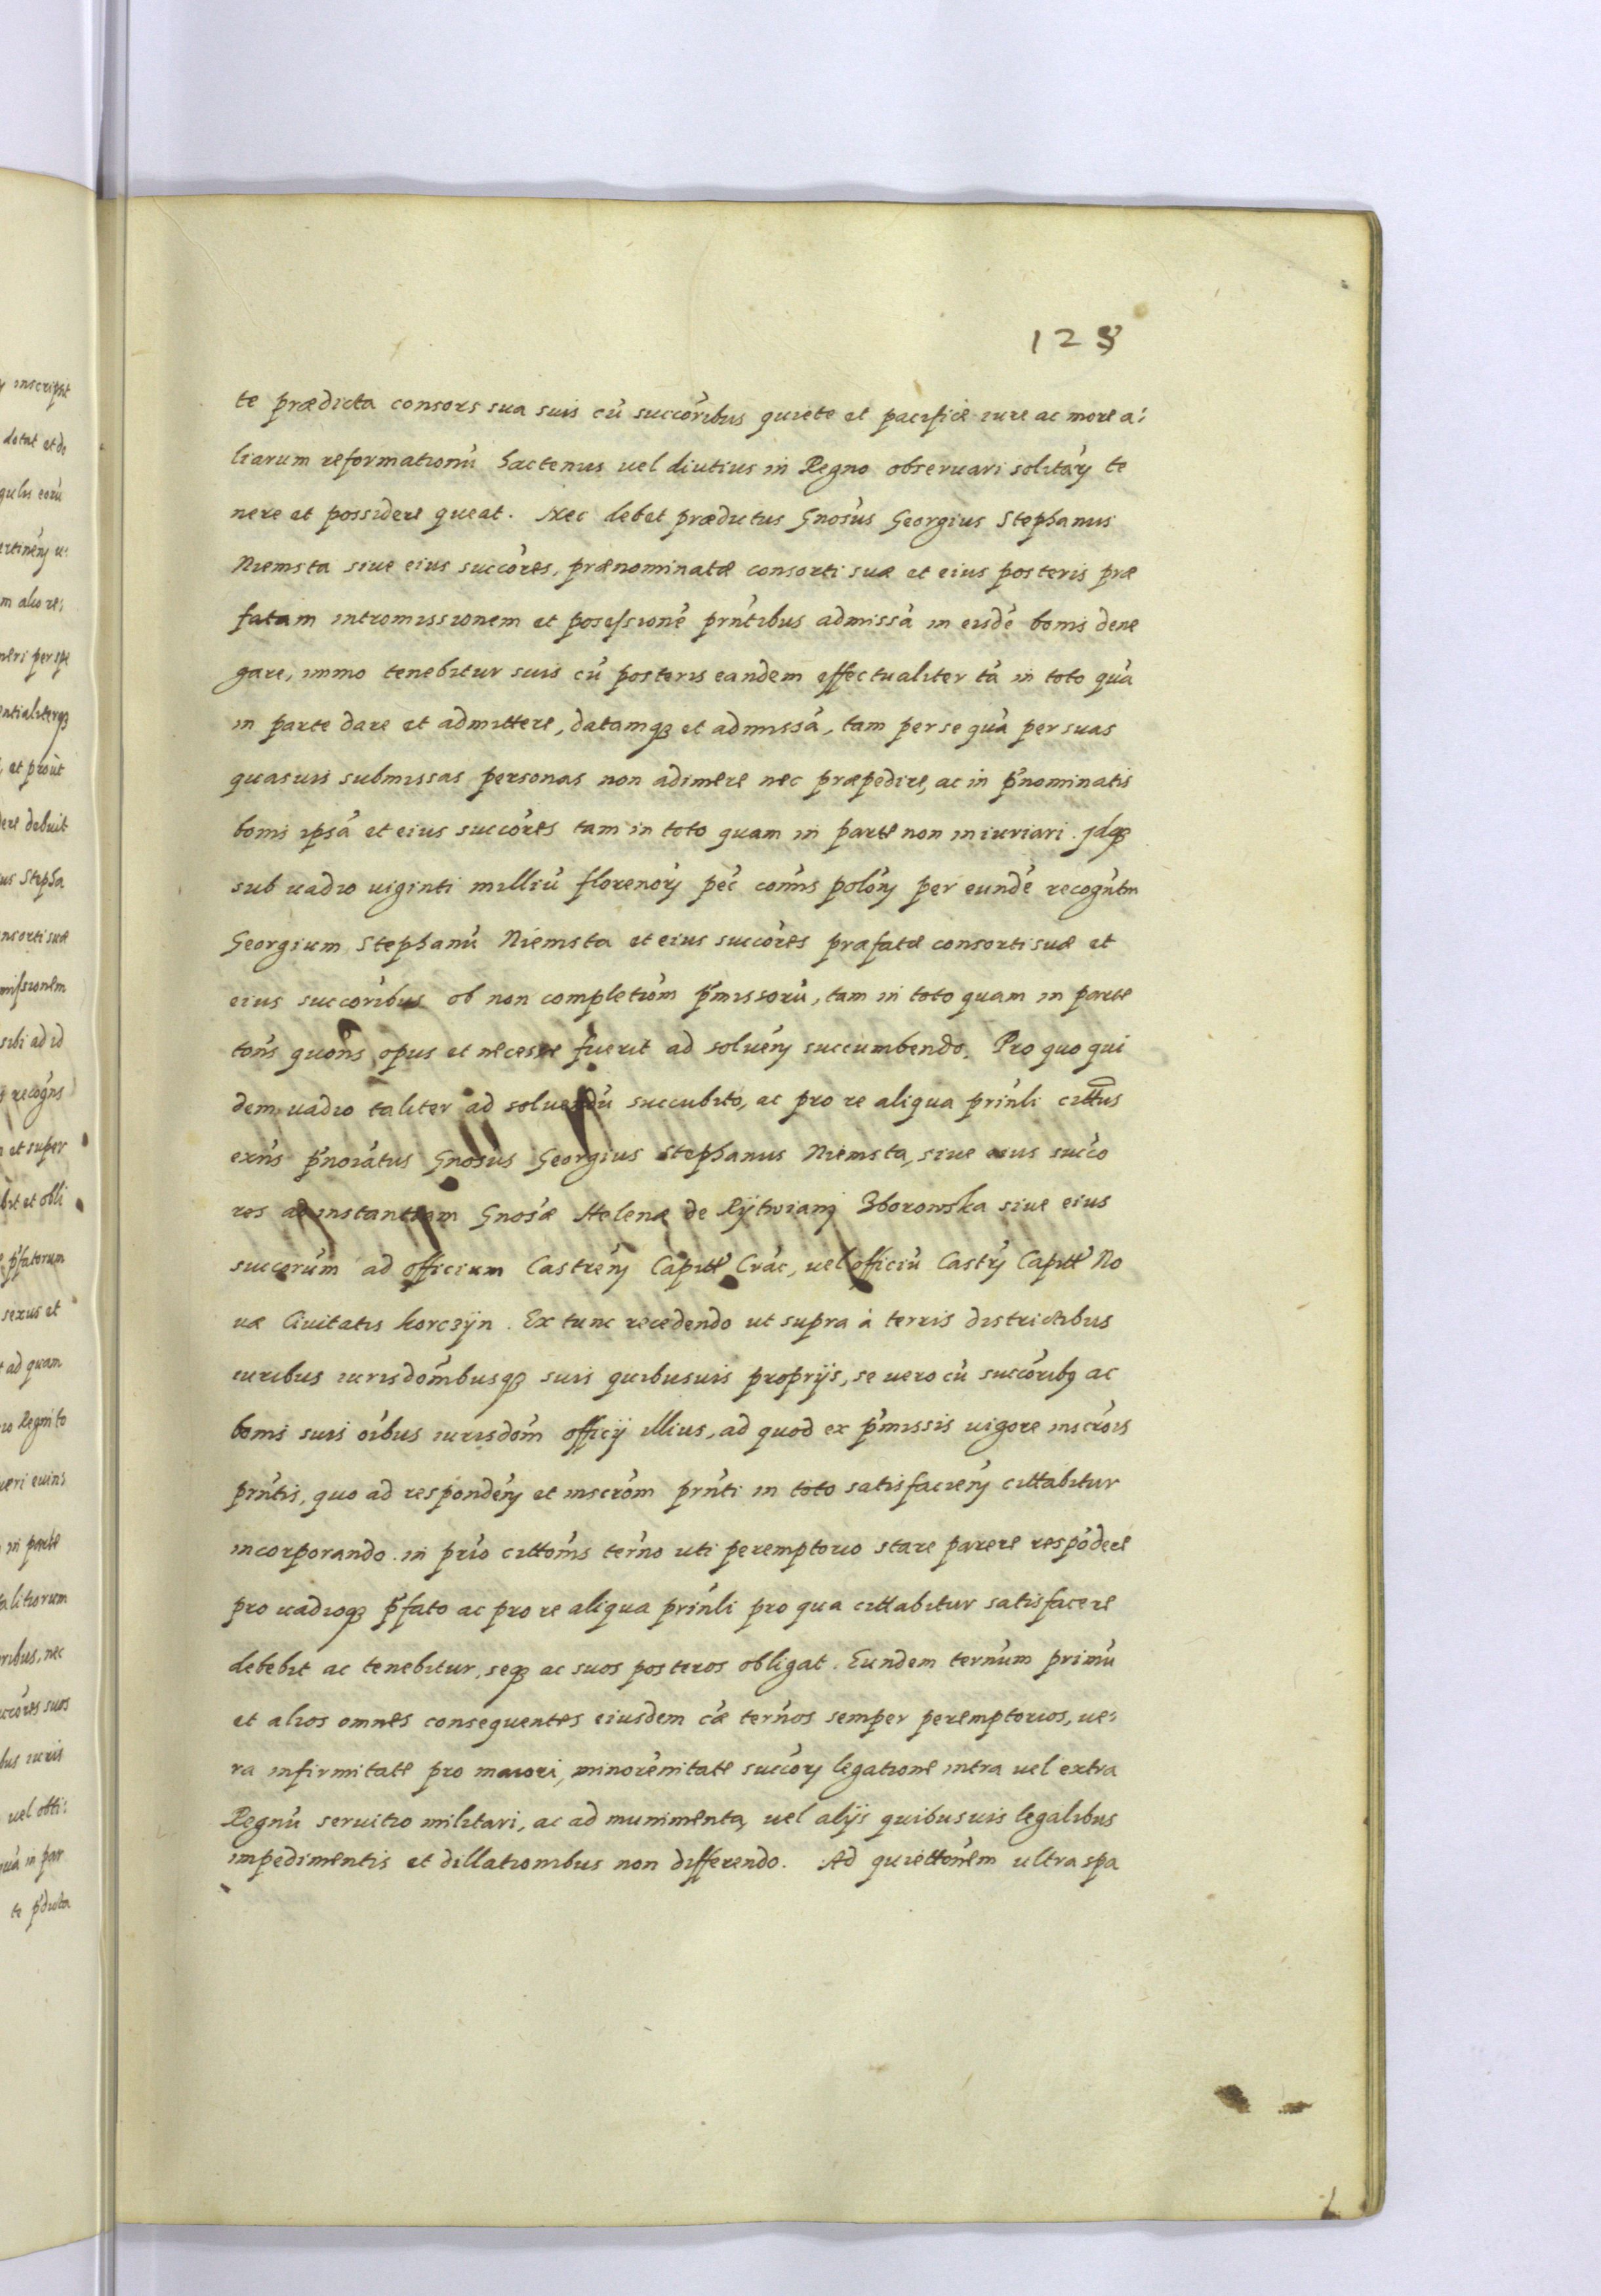 123
te prædicta consors sua suis cū succoribus quiete et pacifice iure ac more a:
liarum reformationū hactenus vel diutius in Regno observari solitaꝝ te
nere et possidere queat. Nec debet prædictus Gnosus Georgius Stephanus
Niemsta sive eius succores, prænominatæ consorti suæ et eius posteris præ
fatam intromissionem et posessionē prntibus admissā in eisdē bonis dene
gare, immo tenebitur suis cū posteris eandem effectualiter tā in toto quā
in parte dare et admittere, datamqȝ et admissā, tam per se quā per suas
quasuis submissas personas non adimere nec præpedire, ac in pnominatis
bonis ipsā et eius succores tam in toto quam in parte non iniuriari. Idqȝ
sub vadio viginti milliū florenoꝝ pec coñis poloꝝ per eundē recogntm
Georgium Stephanū Niemsta et eius succores præfatæ consorti suæ et
eius succoribus ob non completiom pmissorū, tam in toto quam in parte
toñs quoñs opus et necesse fuerit ad solveñ succumbendo. Pro quo qui
dem vadio taliter ad solvendū succubito, ac pro re aliqua prinli cittus
exñs pnoiatus Gnosus Georgius Stephanus Niemsta, sive eius succo
res ad instantiam Gnosæ Helenæ de Rÿtwianÿ Zborowska sive eius
succorum ad officium Castreñ Capitt Crac, vel officiū Castrꝝ Capitt No
væ Civitatis Korczÿn. Ex tunc recedendo ut supra á terris districtibus
iuribus iurisdombusqȝ suis quibusvis proprijs, se vero cū succoribꝫ ac
bonis suis oibus iurisdom officij illius, ad quod ex pmissis vigore inscrois
prntis, quo ad respondeñ et inscrom prnti in toto satisfacieñ cittabitur
incorporando. in prio cittonis terno uti peremptorio stare parere respōdere
pro vadioqȝ pfato ac pro re aliqua prinli pro qua cittabitur satisfacere
debebit ac tenebitur, seqȝ ac suos posteros obligat. Eundem ternum primū
et alios omnes consequentes eiusdem cæ ternos semper peremptorios, ve:
ra infirmitate pro maiori, minorenitate succoꝝ legatione intra vel extra
Regnū servitio militari, ac ad munimenta, vel alijs quibusvis legalibus
impedimentis et dillationibus non differendo. Ad quiettonem ultra spa